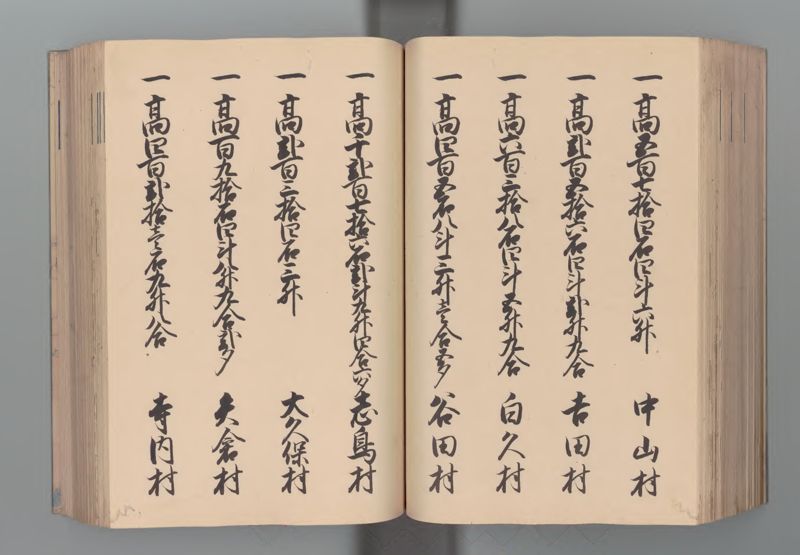 一 高五百七拾四石四斗六升 中山村
一 高弐百五拾六石四斗弐升九合 吉田村
一 高六百三拾八石四斗五升九合 白久村
一 高四百五石八斗三升壱合五夕 谷田村
一 高千弐百七拾六石弐斗九升四合六夕 志鳥村
一 高弐百三拾四石三升 大久保村
一 高百九拾石四斗八升九合弐夕 大倉村
一 高四百弐拾壱石九升八合 寺内村